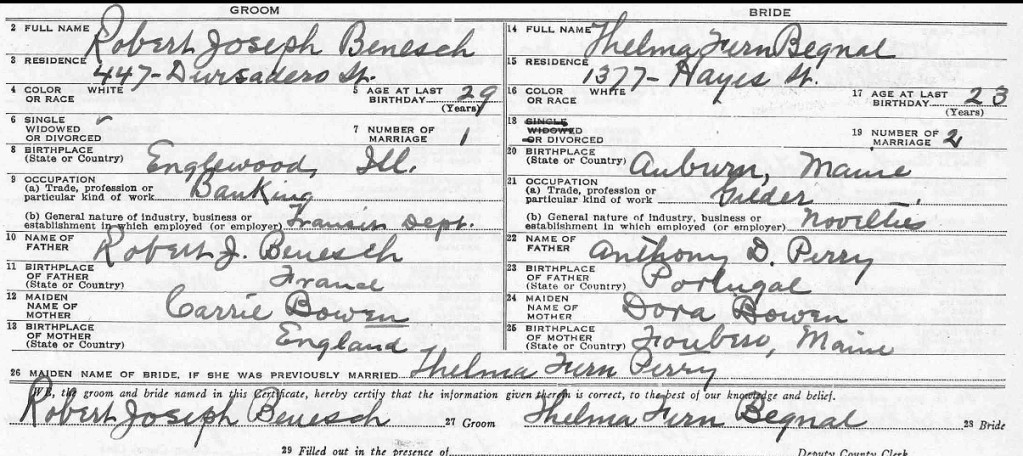 GROOM
2 FULL NAME Robert Joseph Benesch
3 RESIDENCE 447- Divisadero St.
4 COLOR OR RACE WHITE 5 AGE AT LAST BIRTHDAY 29 (Years)
6 SINGLE WIDOWED OR DIVORCED 7 NUMBER OF MARRIAGE 1
8 BIRTHPLACE (State or Country) Englewood, Ill.
9 OCCUPATION
(a) Trade, profession or particular kind of work Banking
(b) General nature of industry, business or establishment in which employed (or employer) Transit Dept.
10 NAME OF FATHER Robert J. Benesch
11 BIRTHPLACE OF FATHER (State or Country) France
12 MAIDEN NAME OF MOTHER Carrie Bowen
13 BIRTHPLACE OF MOTHER (State or Country) England
BRIDE
14 FULL NAME Thelma Fern Begnal
15 RESIDENCE 1377- Hayes St.
16 COLOR OR RACE WHITE 17 AGE AT LAST BIRTHDAY 23 (Years)
18 SINGLE WIDOWED OR DIVORCED 19 NUMBER OF MARRIAGE 2
20 BIRTHPLACE (State or Country) Auburn, Maine
21 OCCUPATION
(a) Trade, profession or particular kind of work Gilder
(b) General nature of industry, business or establishment in which employed (or employer) Novelties
22 NAME OF FATHER Anthony D. Perry
23 BIRTHPLACE OF FATHER (State or Country) Portugal
24 MAIDEN NAME OF MOTHER Dora Bowen
25 BIRTHPLACE OF MOTHER (State or Country) Maine
26 MAIDEN NAME OF BRIDE, IF SHE WAS PREVIOUSLY MARRIED Thelma Fern Perry
WE, the groom and bride named in this Certificate, hereby certify that the information given therein is correct, to the best of our knowledge and belief.
Robert Joseph Benesch 27 Groom Thelma Fern Begnal 28 Bride
29 Filled out in the presence of Deputy County Clerk